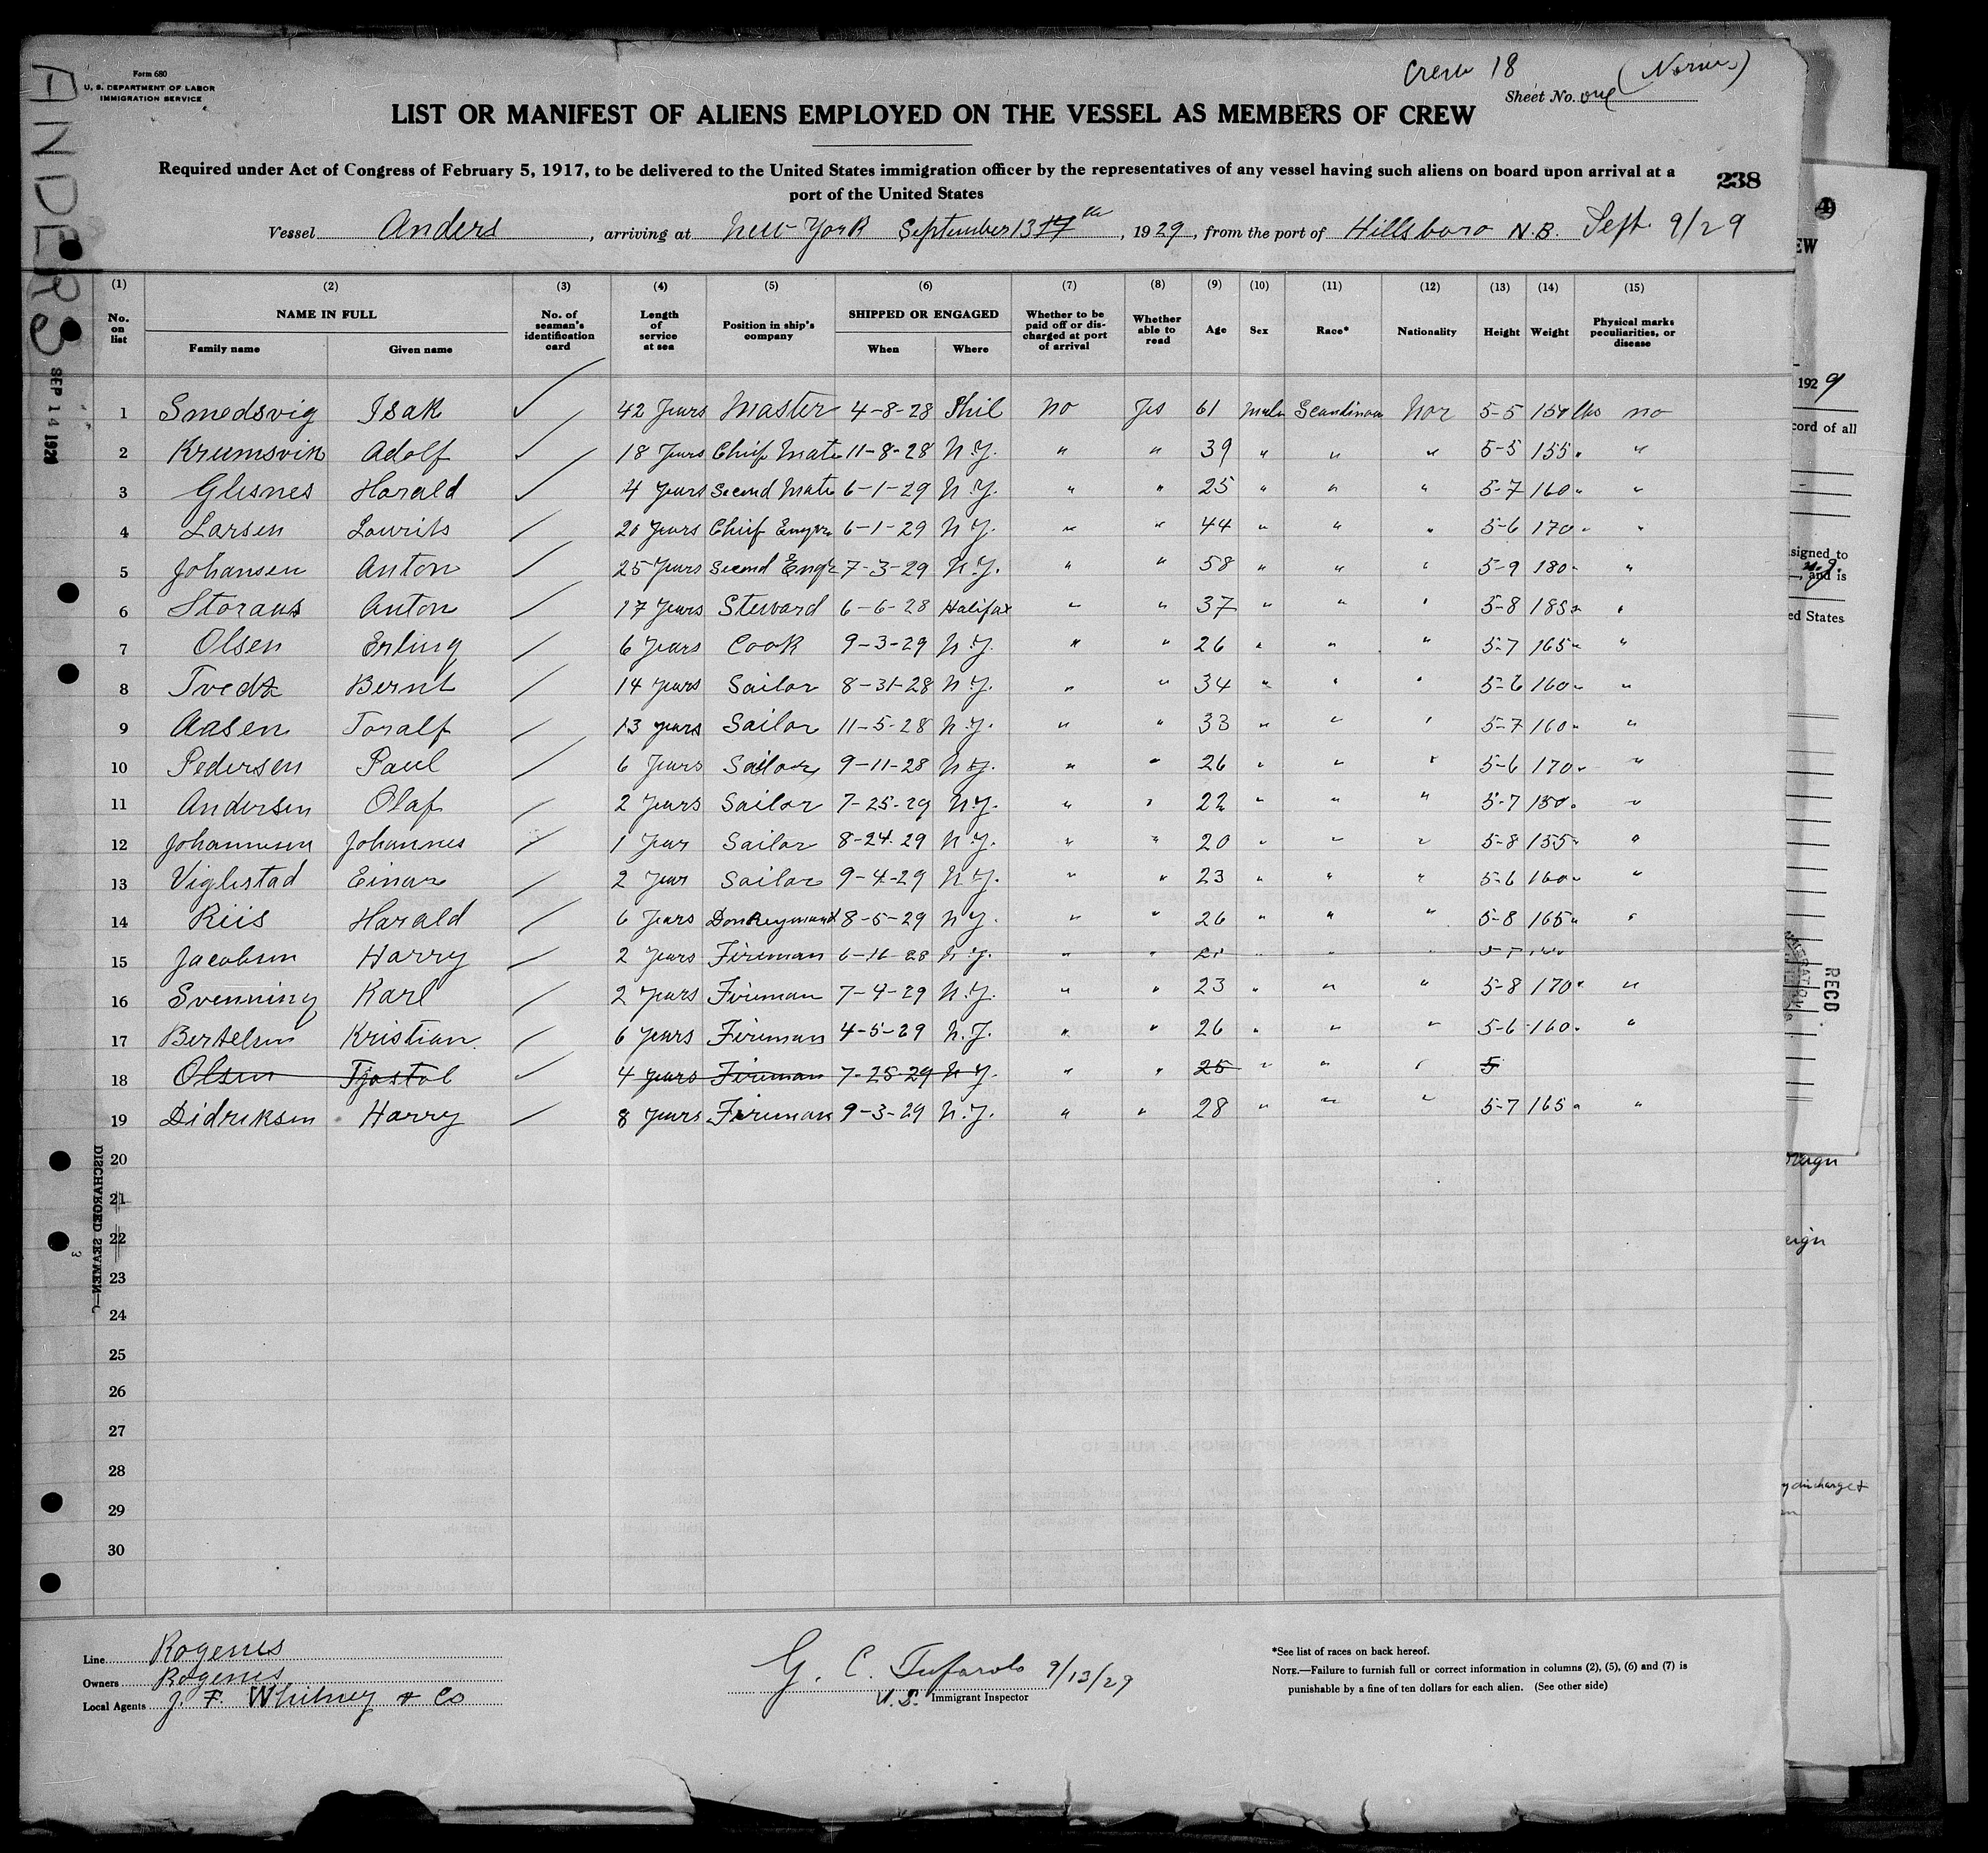 Form 680
U. S. DEPARTMENT OF LABOR
IMMIGRATION SERVICE
Crew 18
Sheet No. one
LIST OR MANIFEST OF ALIENS EMPLOYED ON THE VESSEL AS MEMBERS OF CREW
Required under Act of Congress of February 5, 1917, to be delivered to the United States immigration officer by the representatives of any vessel having such aliens on board upon arrival at a
port of the United States
238
Vessel Anders, arriving at New York September 13 17th, 1929, from the port of Hillsboro N.B. Sept. 9/29
ANDERS
SEP 14 1929
(1) (2) (3) (4) (5) (6) (7) (8) (9) (10) (11) (12) (13) (14) (15)
No. on list NAME IN FULL Family name Given name No. of seaman's identification card Length of service at sea Position in ship's company SHIPPED OR ENGAGED When Where Whether to be paid off or discharged at port of arrival Whether able to read Age Sex Race* Nationality Height Weight Physical marks peculiarities, or disease
1 Smedsvig Isak 42 Years Master 4-8-28 Phil no Yes 61 male Scandinavn Nor 5-5 150 lbs no
2 Krumsvik Adolf 18 Years Chief Mate 11-8-28 N.Y. " " 39 " " " 5-5 155 " "
3 Glesnes Harald 4 Years Second Mate 6-1-29 N.Y. " " 25 " " " 5-7 160 " "
4 Larsen Laurits 20 Years Chief Engnr 6-1-29 N.Y. " " 44 " " " 5-6 170 " "
5 Johansen Anton 25 Years Second Engr 7-3-29 N.Y. " " 58 " " " 5-9 180 " "
6 Anton 17 Years Steward 6-6-28 Halifax " " 37 " " " 5-8 185 " "
7 Olsen Erling 6 Years Cook 9-3-29 N.Y. " " 26 " " " 5-7 165 " "
8 Tvedt Bernt 14 Years Sailor 8-31-28 N.Y. " " 34 " " " 5-6 160 " "
9 Aasen Toralf 13 years Sailor 11-5-28 N.Y. " " 33 " " " 5-7 160 " "
10 Pedersen Paul 6 Years Sailor 9-11-28 N.Y. " " 26 " " " 5-6 170 " "
11 Andersen Olaf 2 Years Sailor 7-25-29 N.Y. " " 22 " " " 5-7 150 " "
12 Johannesen Johannes 1 Year Sailor 8-24-29 N.Y. " " 20 " " " 5-8 155 " "
13 Viglestad Einar 2 Year Sailor 9-4-29 N.Y. " " 23 " " " 5-6 160 " "
14 Riis Harald 6 Years Donkeymand 8-5-29 N.Y. " " 26 " " " 5-8 165 " "
15 Jacobsen Harry 2 Years Fireman 6-16-28 N.Y. " " 21 " " "
16 Svenning Karl 2 Years Fireman 7-4-29 N.Y. " " 23 " " " 5-8 170 " "
17 Bertelsen Kristian 6 years Fireman 4-5-29 N.Y. " " 26 " " " 5-6 160 " "
18 Olsen Tjostol 4 years Fireman 7-25-29 N.Y. " " 25 " " " 5
19 Didriksen Harry 8 Years Fireman 9-3-29 N.Y. " " 28 " " " 5-7 165 " "
20
21
22
23
24
25
26
27
28
29
30
DISCHARGED SEAMEN
Line Rogenes
Owners Rogenes
Local Agents J. F. Whitney & Co
G. C. Tufarolo 9/13/29
U.S. Immigrant Inspector
*See list of races on back hereof.
NOTE.—Failure to furnish full or correct information in columns (2), (5), (6) and (7) is
punishable by a fine of ten dollars for each alien. (See other side)
EW
1929
cord of all
signed to
, and is
ed States
RECD
eign
y discharged